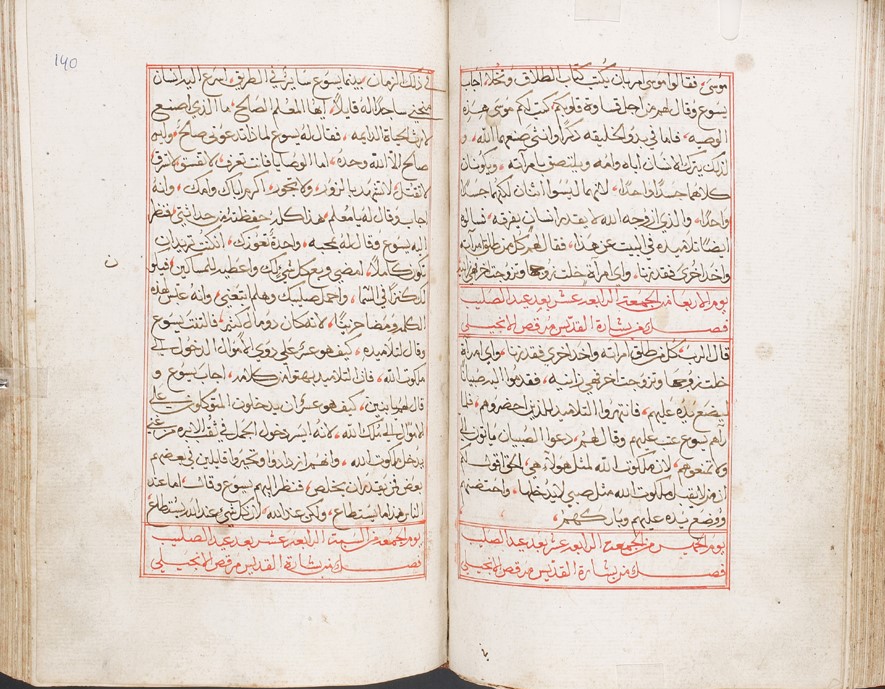 موسى فقالوا موسى امر بان يكتب كتاب الطلاق وتخلا اجاب
يسوع وقال لهم من اجل قساوة قلوبكم كتب لكم موسى هذه
الوصيه فاما في بدو الخليقه ذكرا وانثى صنعهما الله و
لذلك يترك الانسان اباه وامه ويلتصق بامرأته ويكونان
كلاهما جسدًا واحدًا لئنهما ليسوا اثنان لكنهما جسدًا
واحدًا والذي ازوجه الله لا يقدر انسان يفرقه نسالوه
ايضًا تلاميذه في البيت عن هذا فقال لهم كل من طلق امراته
واخذ اخرى فقد زنا واي امرأة خلت زوجها وتزوجت اخر فهي زانيه
يوم الاربعا من الجمعة الرابعه عشر بعد عيد الصليب
فصل من بشارة القديس مرقص الانجيلي
قال الرب كل من طلق امراته واخذ اخرى فقد زنا واي امرأة
خلت زوجها وتزوجت اخر فهي زانيه فقدموا اليه صبيان
ليضع يده عليهم فانتهروا التلاميذ الذين احضروهم فلما
رآهم يسوع غضب عليهم وقال لهم دعوا الصبيان يأتون الي
ولا تمنعوهم لان ملكوت الله لمثل هولاء هي الحق اقول لكم
ان من لا يقبل ملكوت الله مثل صبي لا يدخلها واحتضنهم
ووضع يده عليهم وباركهم
يوم الخميس من الجمعة الرابعه عشر بعد عيد الصليب
فصل من بشارة القديس مرقص الانجيلي
140
في ذلك الزمان بينما يسوع سايرًا في الطريق اسرع اليه انسان
منحني ساجدًا له قايلًا ايها المعلم الصالح ما الذي اصنع
لارث الحياة الدايمه فقال له يسوع لماذا تدعوني صالح وليس
صالح الا الله وحده اما الوصايا فانت تعرف لا تفسق لا تسرق
لا تقتل لا تشهد بالزور ولا تجور اكرم اباك وامك وانه
اجاب وقال له يا معلم هذا كله حفظته من حداثتي فنظر
اليه يسوع وقال له بمحبه واحدة تعوزك ان كنت تريد ان
تكون كاملًا امضي وبع كل شي لك واعطيه للمساكين فيكون
لك كنزًا في السما واحمل صليبك وهلم اتبعني وانه عبس لهذه
الكلمه ومضا حزينًا لانه كان ذو مال كثير فالتفت يسوع
وقال لتلاميذه كيف هو عسر على ذوي الاموال الدخول الى
ملكوت الله فان التلاميذ بهتوا من كلامه اجاب يسوع و
قال لهم يا بنين كيف هو عسر ان يدخلون المتوكلون على
الاموال الى ملك الله لانه ايسر دخول الجمل في ثقب الابره من غني
يدخل ملكوت الله وانهم ازدادوا وتحيروا قايلين في بعضهم
بعض فمن يقدر ان يخلص فنظر اليهم يسوع وقال اما عند
الناس هذا ما يستطاع ولكن عند الله لان كل شي عند الله يستطاع
يوم الجمعة من السبت الرابعه عشر بعد عيد الصليب
فصل من بشارة القديس مرقص الانجيلي